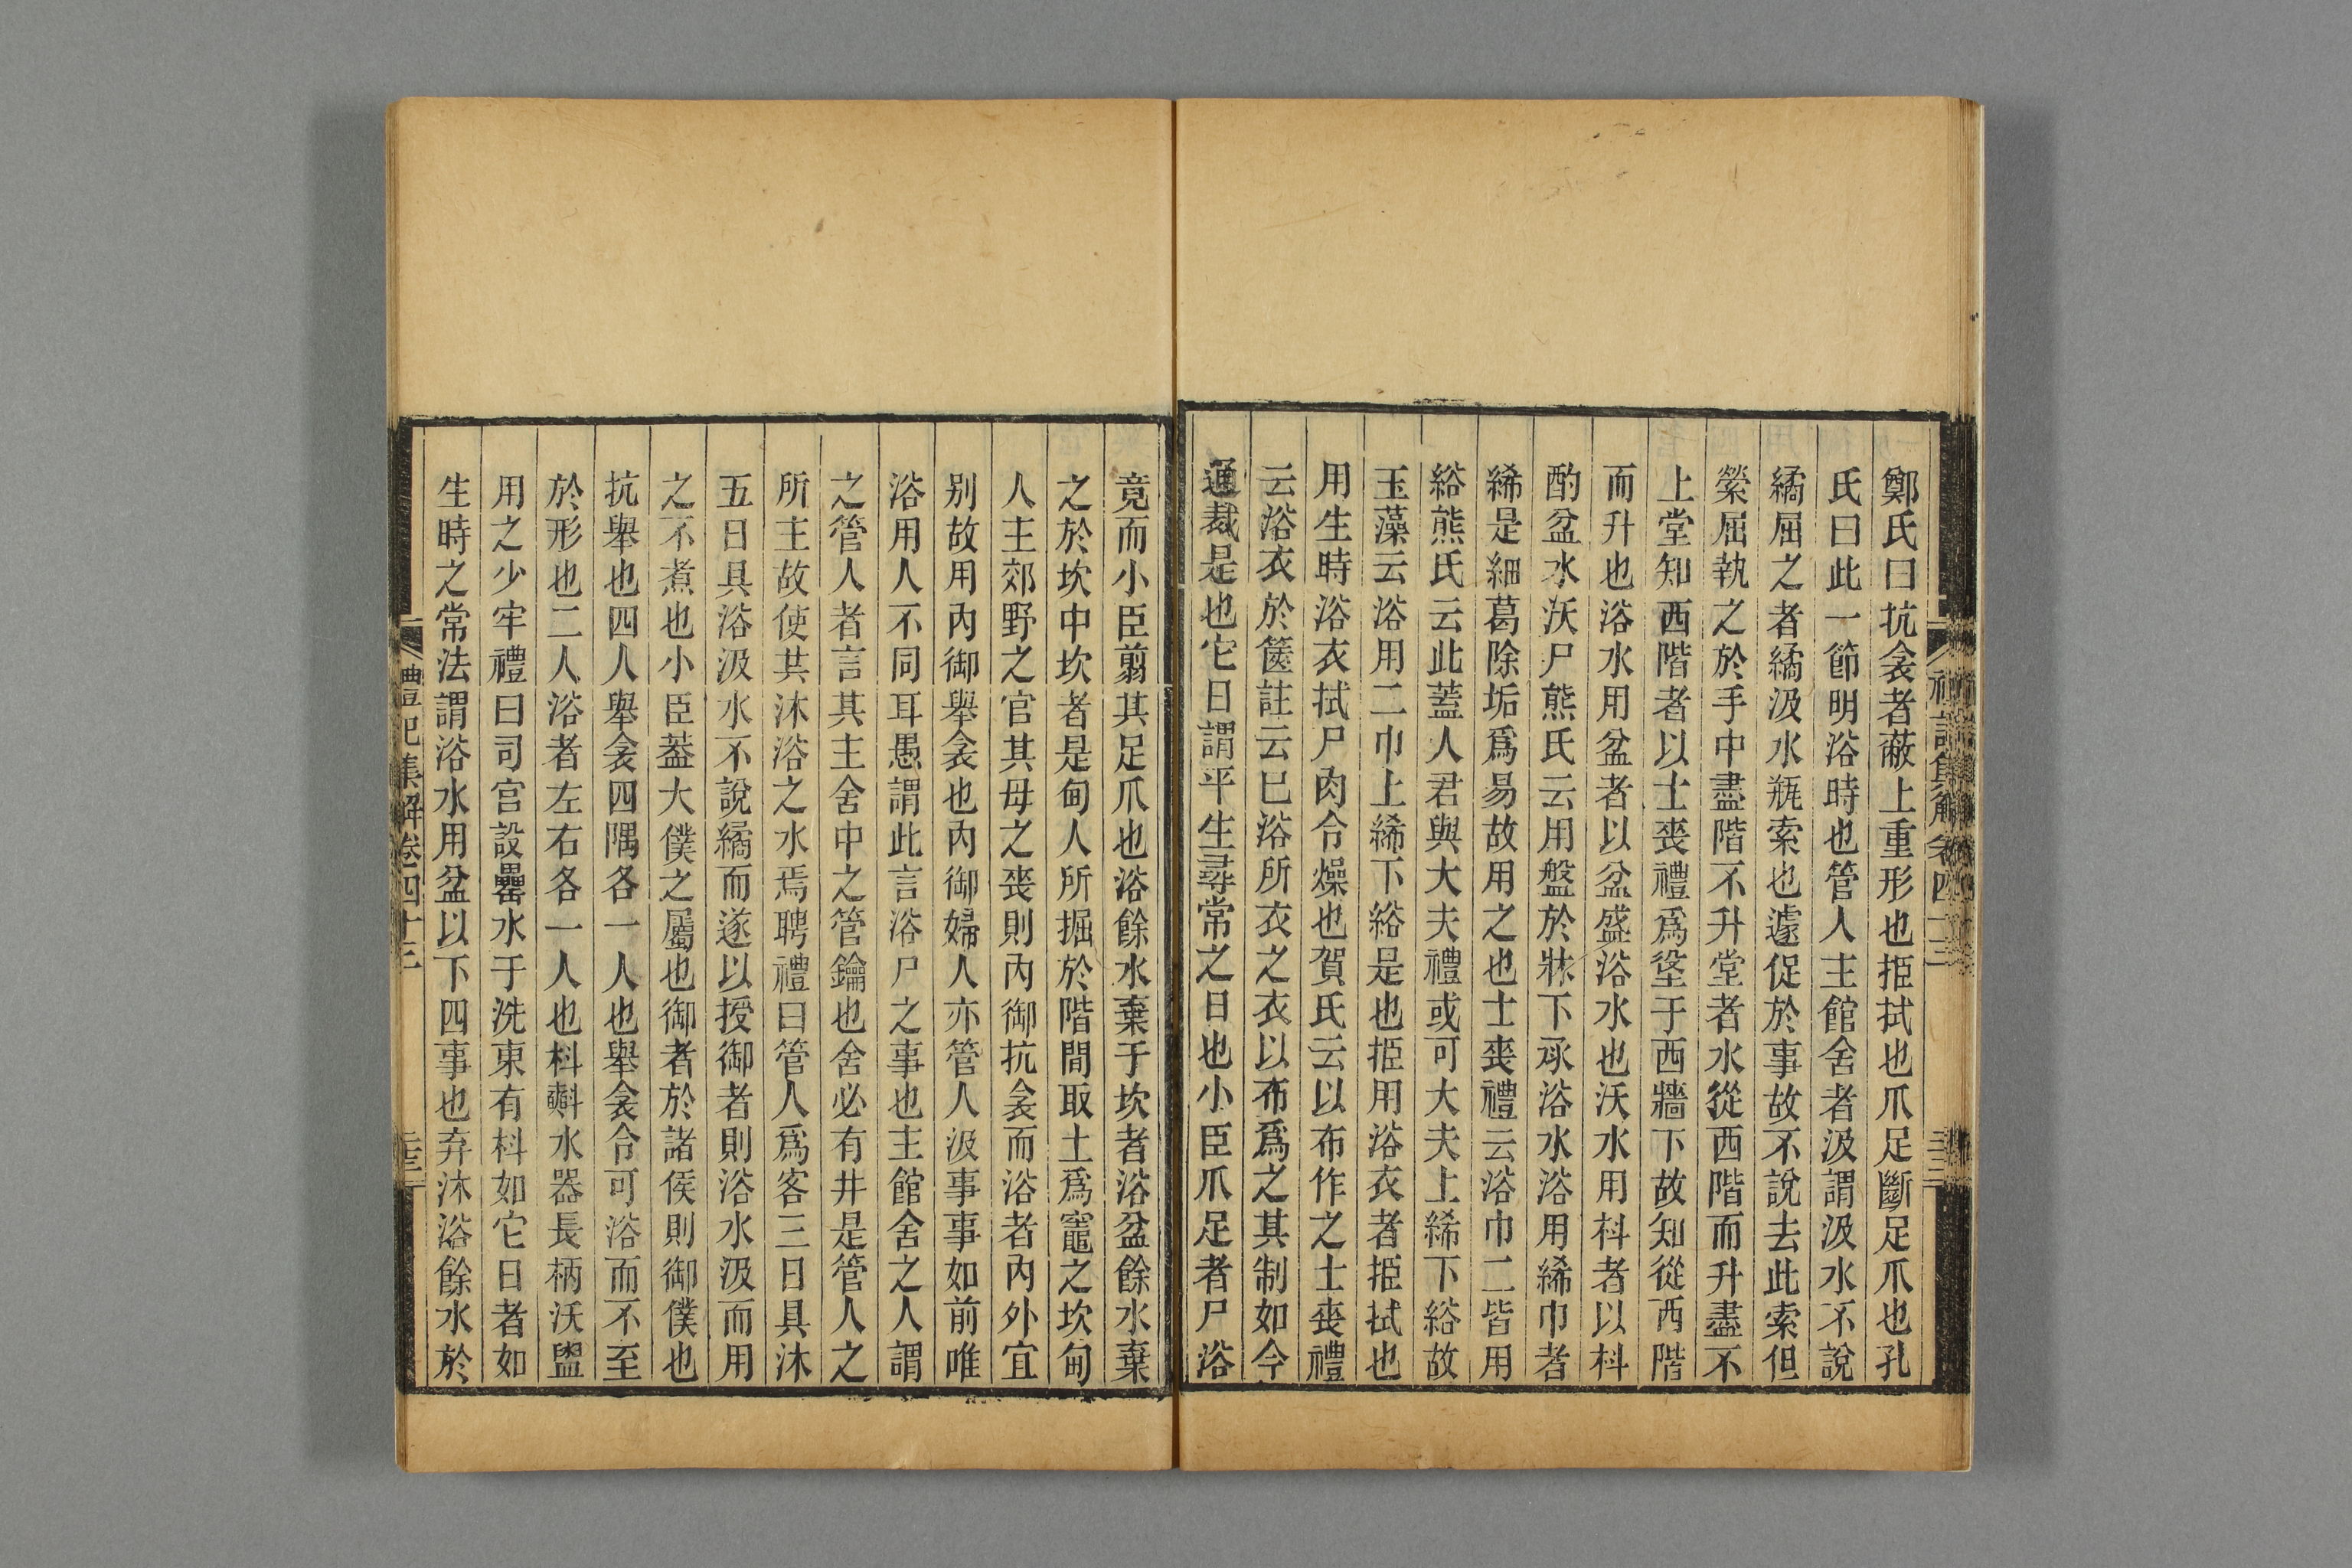 鄭氏曰抗衾者蔽上重形也挋拭也爪足斷足爪也孔
氏曰此一節明浴時也管人主館舍者汲謂汲水不說
繘屈之者繘汲水瓶索也遽促於事故不說去此索但
縈屈執之於手中盡階不升堂者水從西階而升盡不
上堂知西階者以士喪禮爲垼于西牆下故知從西階
而升也浴水用盆者以盆盛浴水也沃水用枓者以枓
酌盆水沃尸熊氏云用盤於牀下承浴水浴用絺巾者
絺是細葛除垢爲易故用之也士喪禮云浴巾二皆用
綌熊氏云此蓋人君與大夫禮或可大夫上絺下綌故
玉藻云浴用二巾上絺下綌是也挋用浴衣者挋拭也
用生時浴衣拭尸肉令燥也賀氏云以布作之士喪禮
云浴衣於篋註云巳浴所衣之衣以布爲之其制如今
通裁是也它日謂平生尋常之日也小臣爪足者尸浴
竟而小臣翦其足爪也浴餘水棄于坎者浴盆餘水棄
之於坎中坎者是甸人所掘於階間取土爲竈之坎甸
人主郊野之官其母之喪則內御抗衾而浴者內外宜
别故用內御舉衾也內御婦人亦管人汲事事如前唯
浴用人不同耳愚謂此言浴尸之事也主館舍之人謂
之管人者言其主舍中之管鑰也舍必有井是管人之
所主故使其沐浴之水焉聘禮曰管人爲客三日具沐
五日具浴汲水不說繘而遂以授御者則浴水汲而用
之不煮也小臣葢大僕之屬也御者於諸侯則御僕也
抗舉也四人舉衾四隅各一人也舉衾令可浴而不至
於形也二人浴者左右各一人也枓㪺水器長柄沃盥
用之少牢禮曰司宮設罍水于洗東有枓如它日者如
生時之常法謂浴水用盆以下四事也弃沐浴餘水於
禮記集解卷四十三